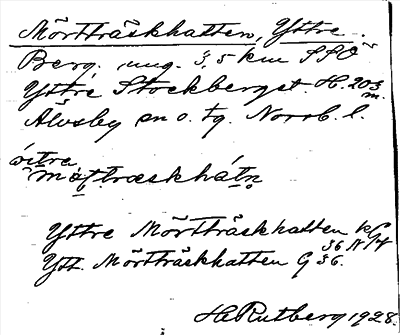 Mörtträskhatten, Yttre.
Berg, ung. 3,5 km SSO
Yttre Stockberget. H. 203 m.
Älvsby sn o. tg. Norrb. l.
Yttre Mörtträskhatten kG
36 N 14
Ytt. Mörtträskhatten G 36.
H. Rutberg 1928.